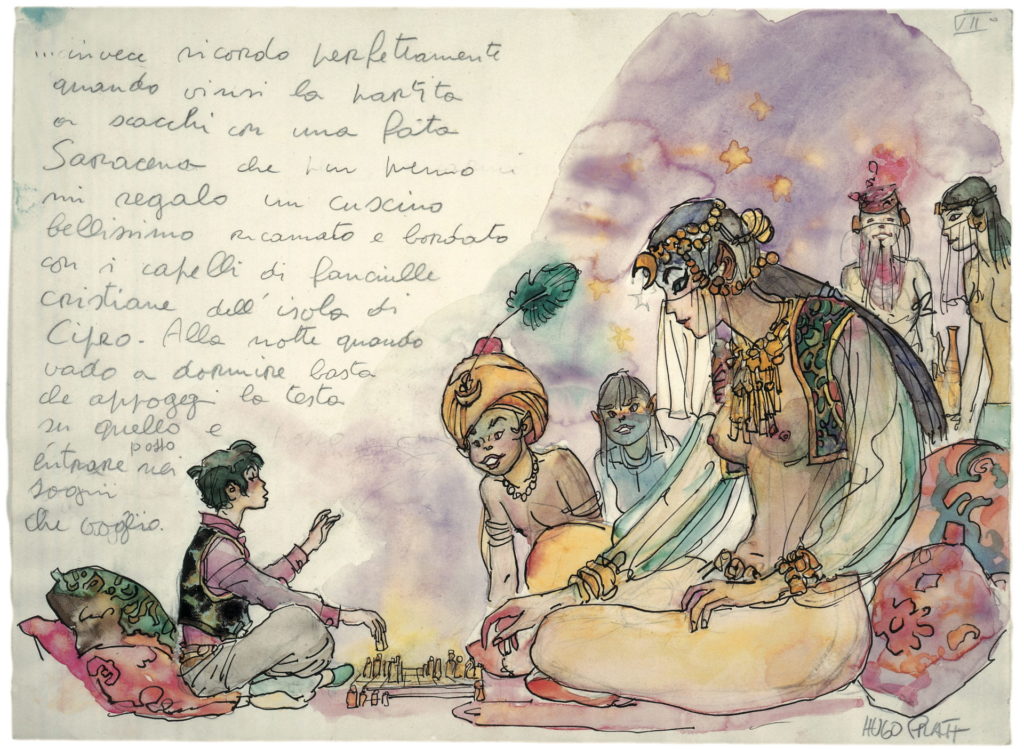 VII°
...invece ricordo perfettamente
quando vinsi la partita
a scacchi con una fata
Saracena che per premio
mi regalo un cuscino
bellissimo ricamato e bordato
con i capelli di fanciulle
cristiane dell'isola di
Cipro. Alla notte quando
vado a dormire basta
che appoggi la testa
su quello e
posso
entrare nei
sogni
che voglio.
HUGO PRATT